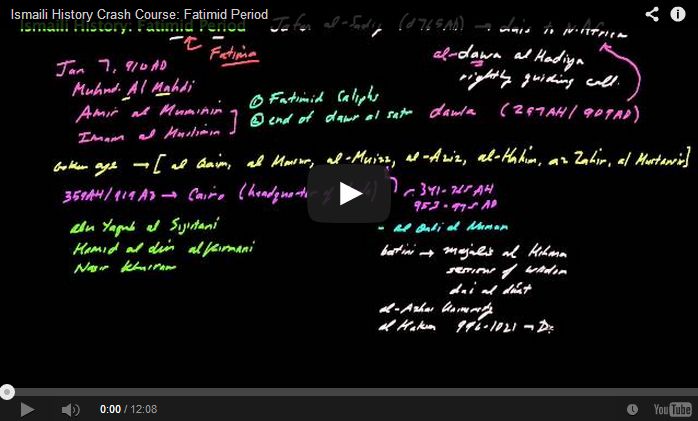 Ismaili History Crash Course: Fatimid Period
Ismaili History: Fatimid Period
Jafar al-Sadiq (d 765AD) → dais to N. Africa
Fatima
al-dawa al Hadiya
rightly guiding call.
Jan 7, 910 AD
Muhmd. Al Mahdi
Amir al Muminin
Imam al Muslimin
① Fatimid Caliphs
② end of dawr al satr
dawla (297AH/909AD)
Golden age → [al Qaim, al Mansur, al-Muizz, al-Aziz, al-Hakim, az Zahir, al Mustansir]
359AH/919AD → Cairo (headquarter of
341-365 AH
953-975 AD
abu Yaqub al Sijistani
Hamid al din al Kirmani
Nasir Khusraw
- al Qadi al Numan
batini → majalis al Hikma
sessions of wisdom
dai al duat
al-Azhar University
al Hakim 996-1021 → D
0:00 / 12:08
YouTube